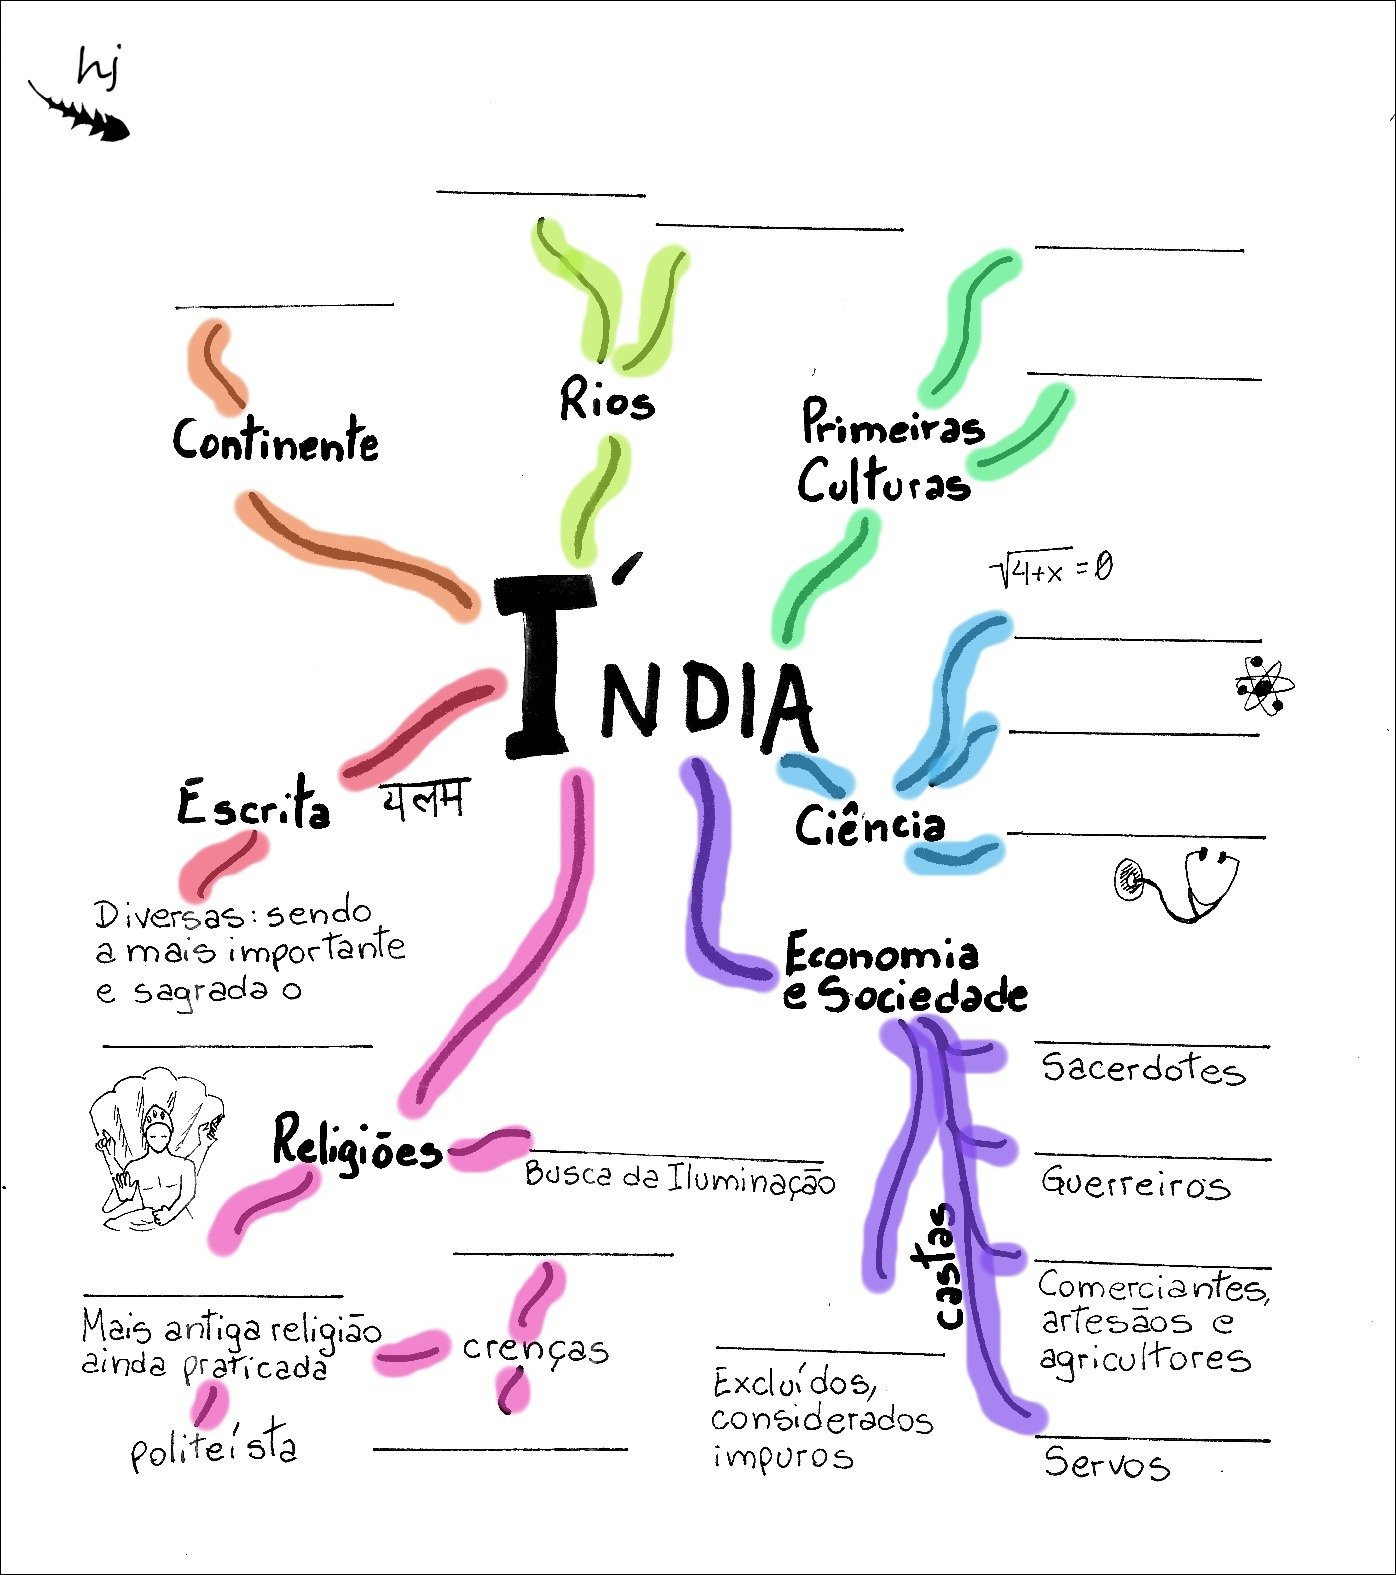 hj
Continente
Rios
Primeiras
Culturas
√4+x = 0
ÍNDIA
Escrita
यलम
Ciência
Diversas: sendo
a mais importante
e sagrada o
Economia
e Sociedade
Sacerdotes
Religiões
Busca da Iluminação
Guerreiros
castas
Mais antiga religião
ainda praticada
crenças
Comerciantes,
artesãos e
agricultores
politeísta
Excluídos,
considerados
impuros
Servos